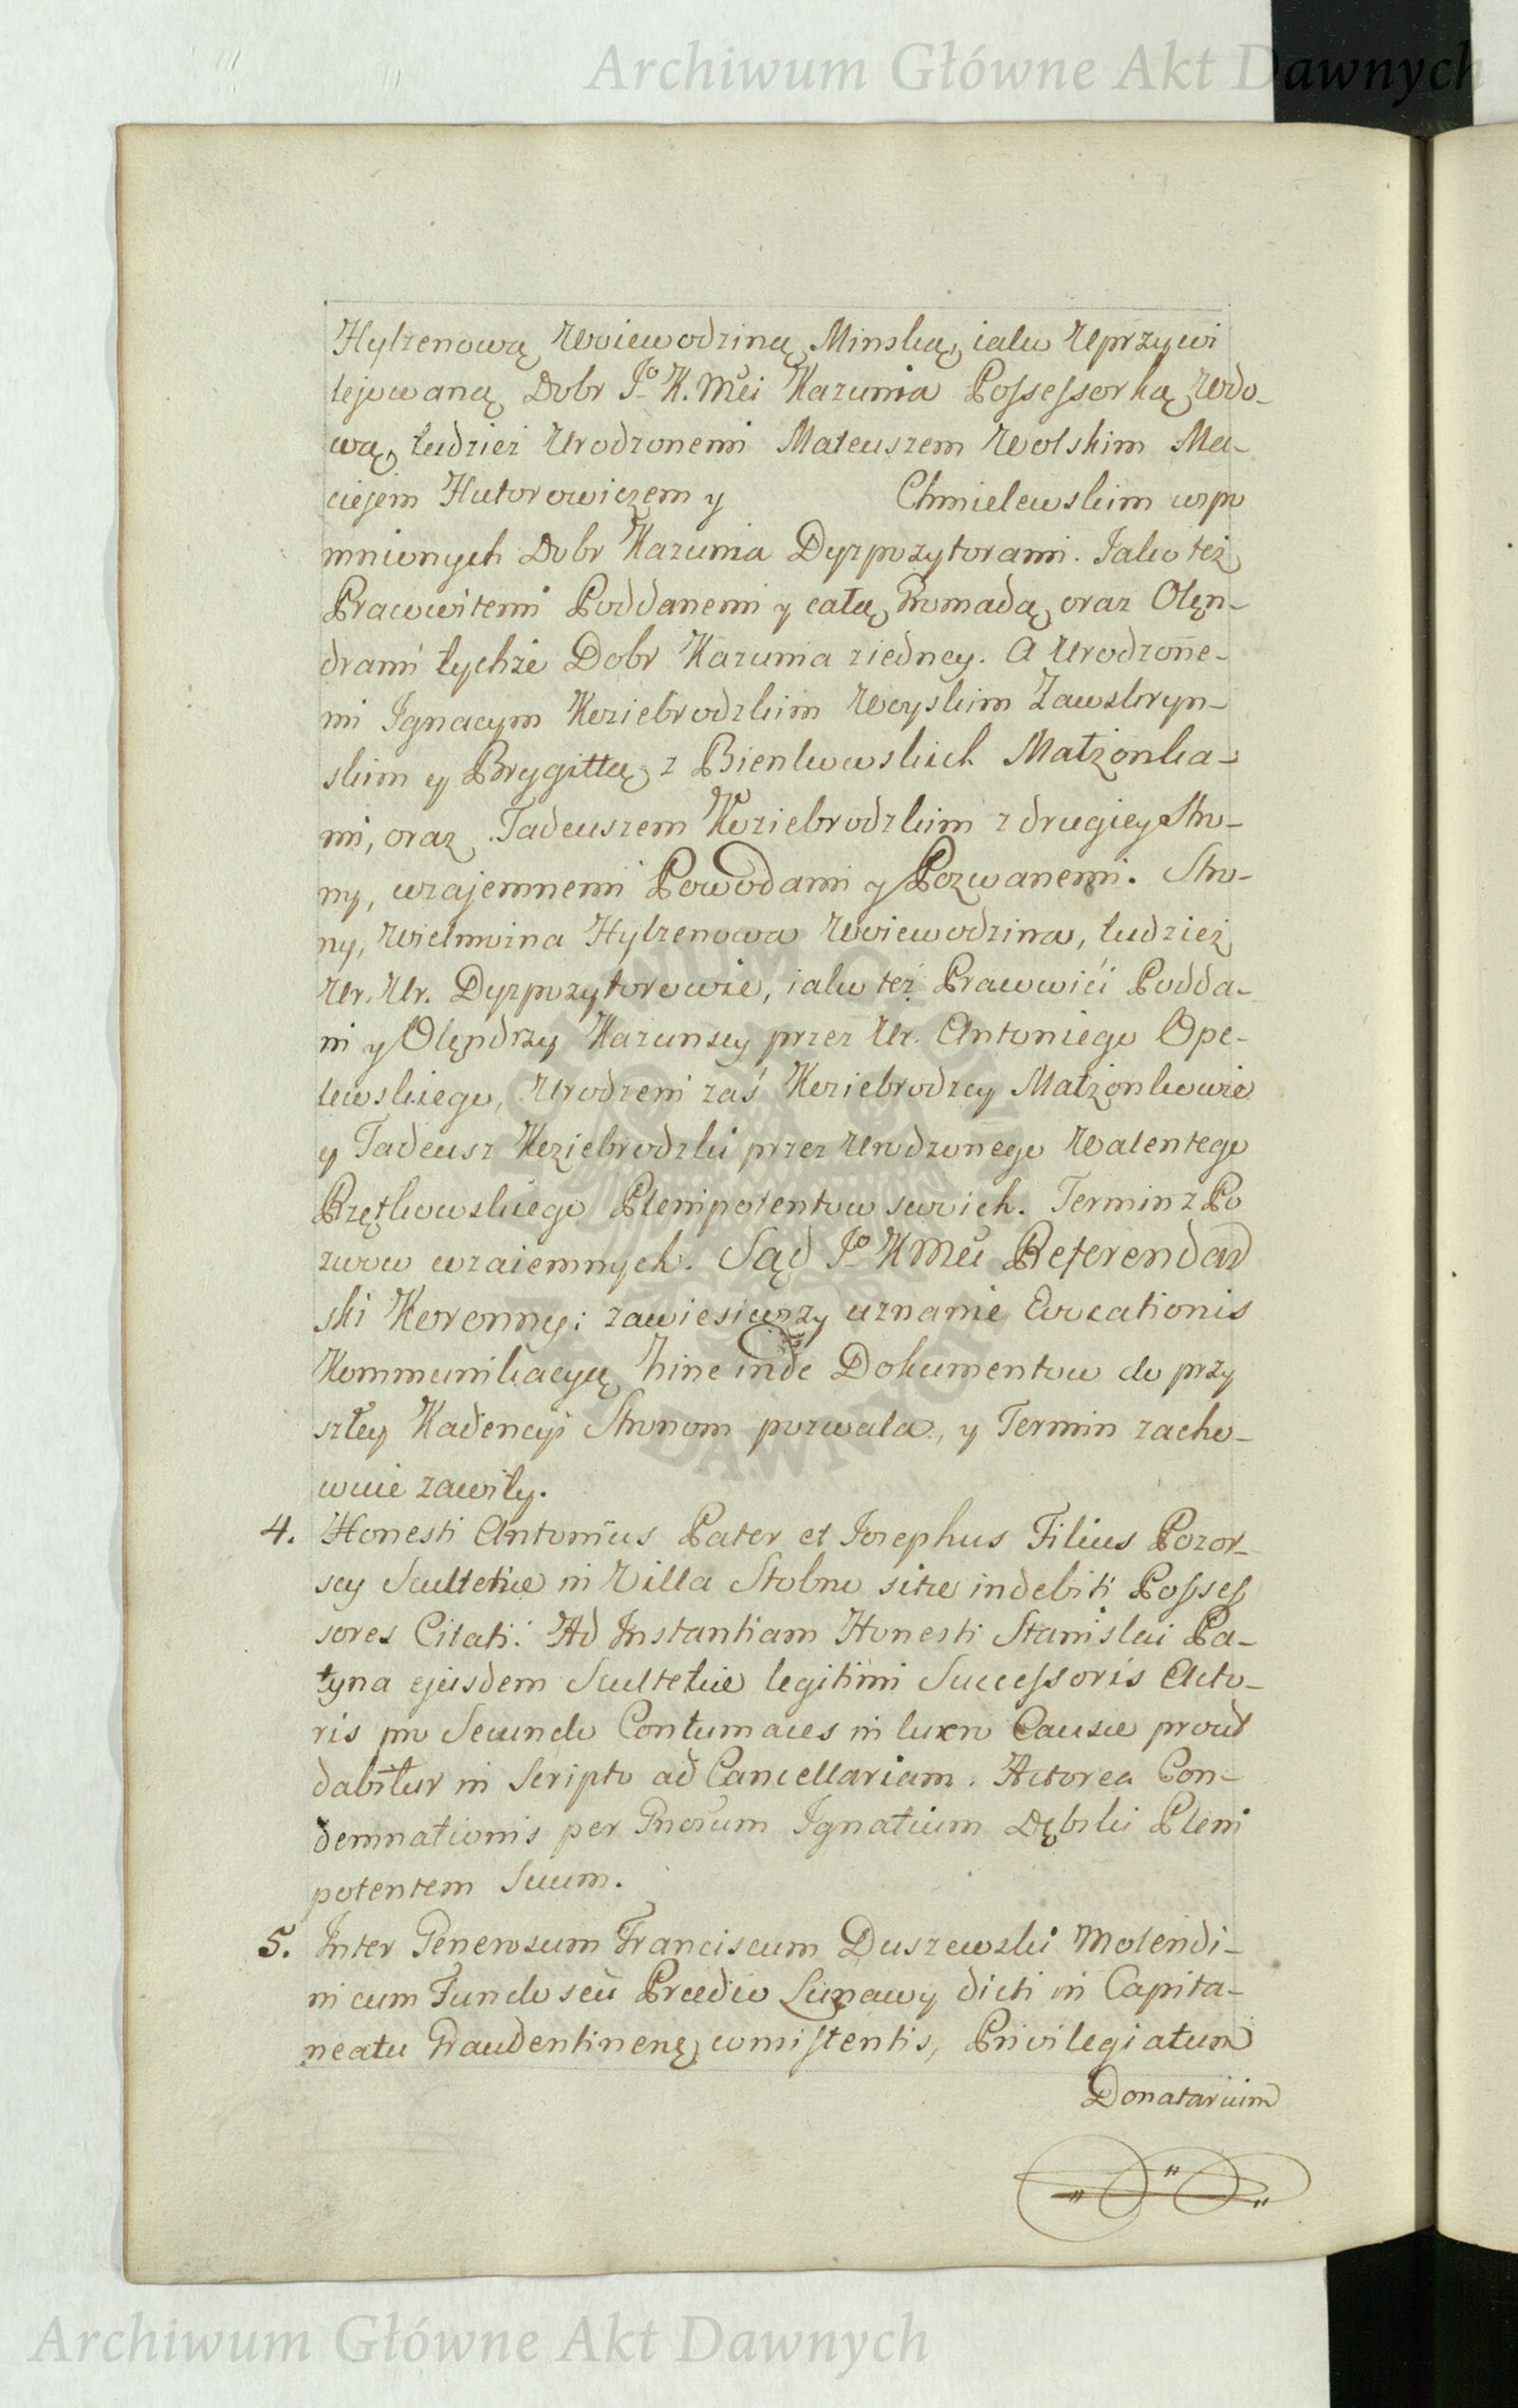 Archiwum Główne Akt Dawnych
Hylzenową Woiewodziną Minską, iako Uprzywi
lejowaną Dobr Jº K. Mci Kazunia Possessorką, Wdo-
wą, tudzież Urodzonemi Mateuszem Wolskim Ma-
ciejem Hutorowiczem y Chmielewskim wspo
mnionych Dobr Kazunia Dyzpozytorami. Jako też
Pracowitemi Poddanemi y całą Gromadą, oraz Olęn-
drami tychże Dobr Kazunia ziedney. A Urodzone-
mi Ignacym Koziebrodzkim Woyskim Zawskryn-
skim y Brygittą z Bienkowskich Małżonka-
mi, oraz Tadeuszem Koziebrodzkim z drugiey Stro-
ny, wzajemnemi Powodami y Pozwanemi. Stro-
ny, Wielmożna Hylzenowa Woiewodzina, tudzież
Ur. Ur. Dyzpozytorowie, iako też Pracowići Podda-
ni y Olęndrzy Kazunscy przez Ur. Antoniego Ope-
lewskiego, Urodzeni zaś Koziebrodzcy Małżonkowie
y Tadeusz Koziebrodzki przez Urodzonego Walentego
Bzętkowskiego Plenipotentow swoich. Termin z Po
zwow wzaiemnych. Sąd Jº K Mci Referendar
ski Koronny: zawiesiwszy uznanie Evocationis
Kommunikacyą hinc inde Dokumentow do przy
szłey Kadencyi Stronom pozwala, y Termin zacho-
wuie zawity.
4. Honesti Antonius Pater et Josephus Filius Pozor-
scy Scultetiæ in Villa Stolno sitæ indebiti Posses
sores Citati. Ad Instantiam Honesti Stanislai Pa-
tyna ejusdem Scultetiæ legitimi Successoris Acto-
ris pro Secundo Contumaces in lucro Causæ prout
dabitur in Scripto ad Cancellariam. Actorea Con-
demnationis per Gnosum Ignatium Dębski Pleni
potentem Suum.
5. Inter Generosum Franciscum Duszewski Molendi-
ni cum Fundo seu Prædio Lunawy dicti in Capita-
neatu Graudentinen̄, comistentis, Privilegiatum
Donatarium
Archiwum Główne Akt Dawnych